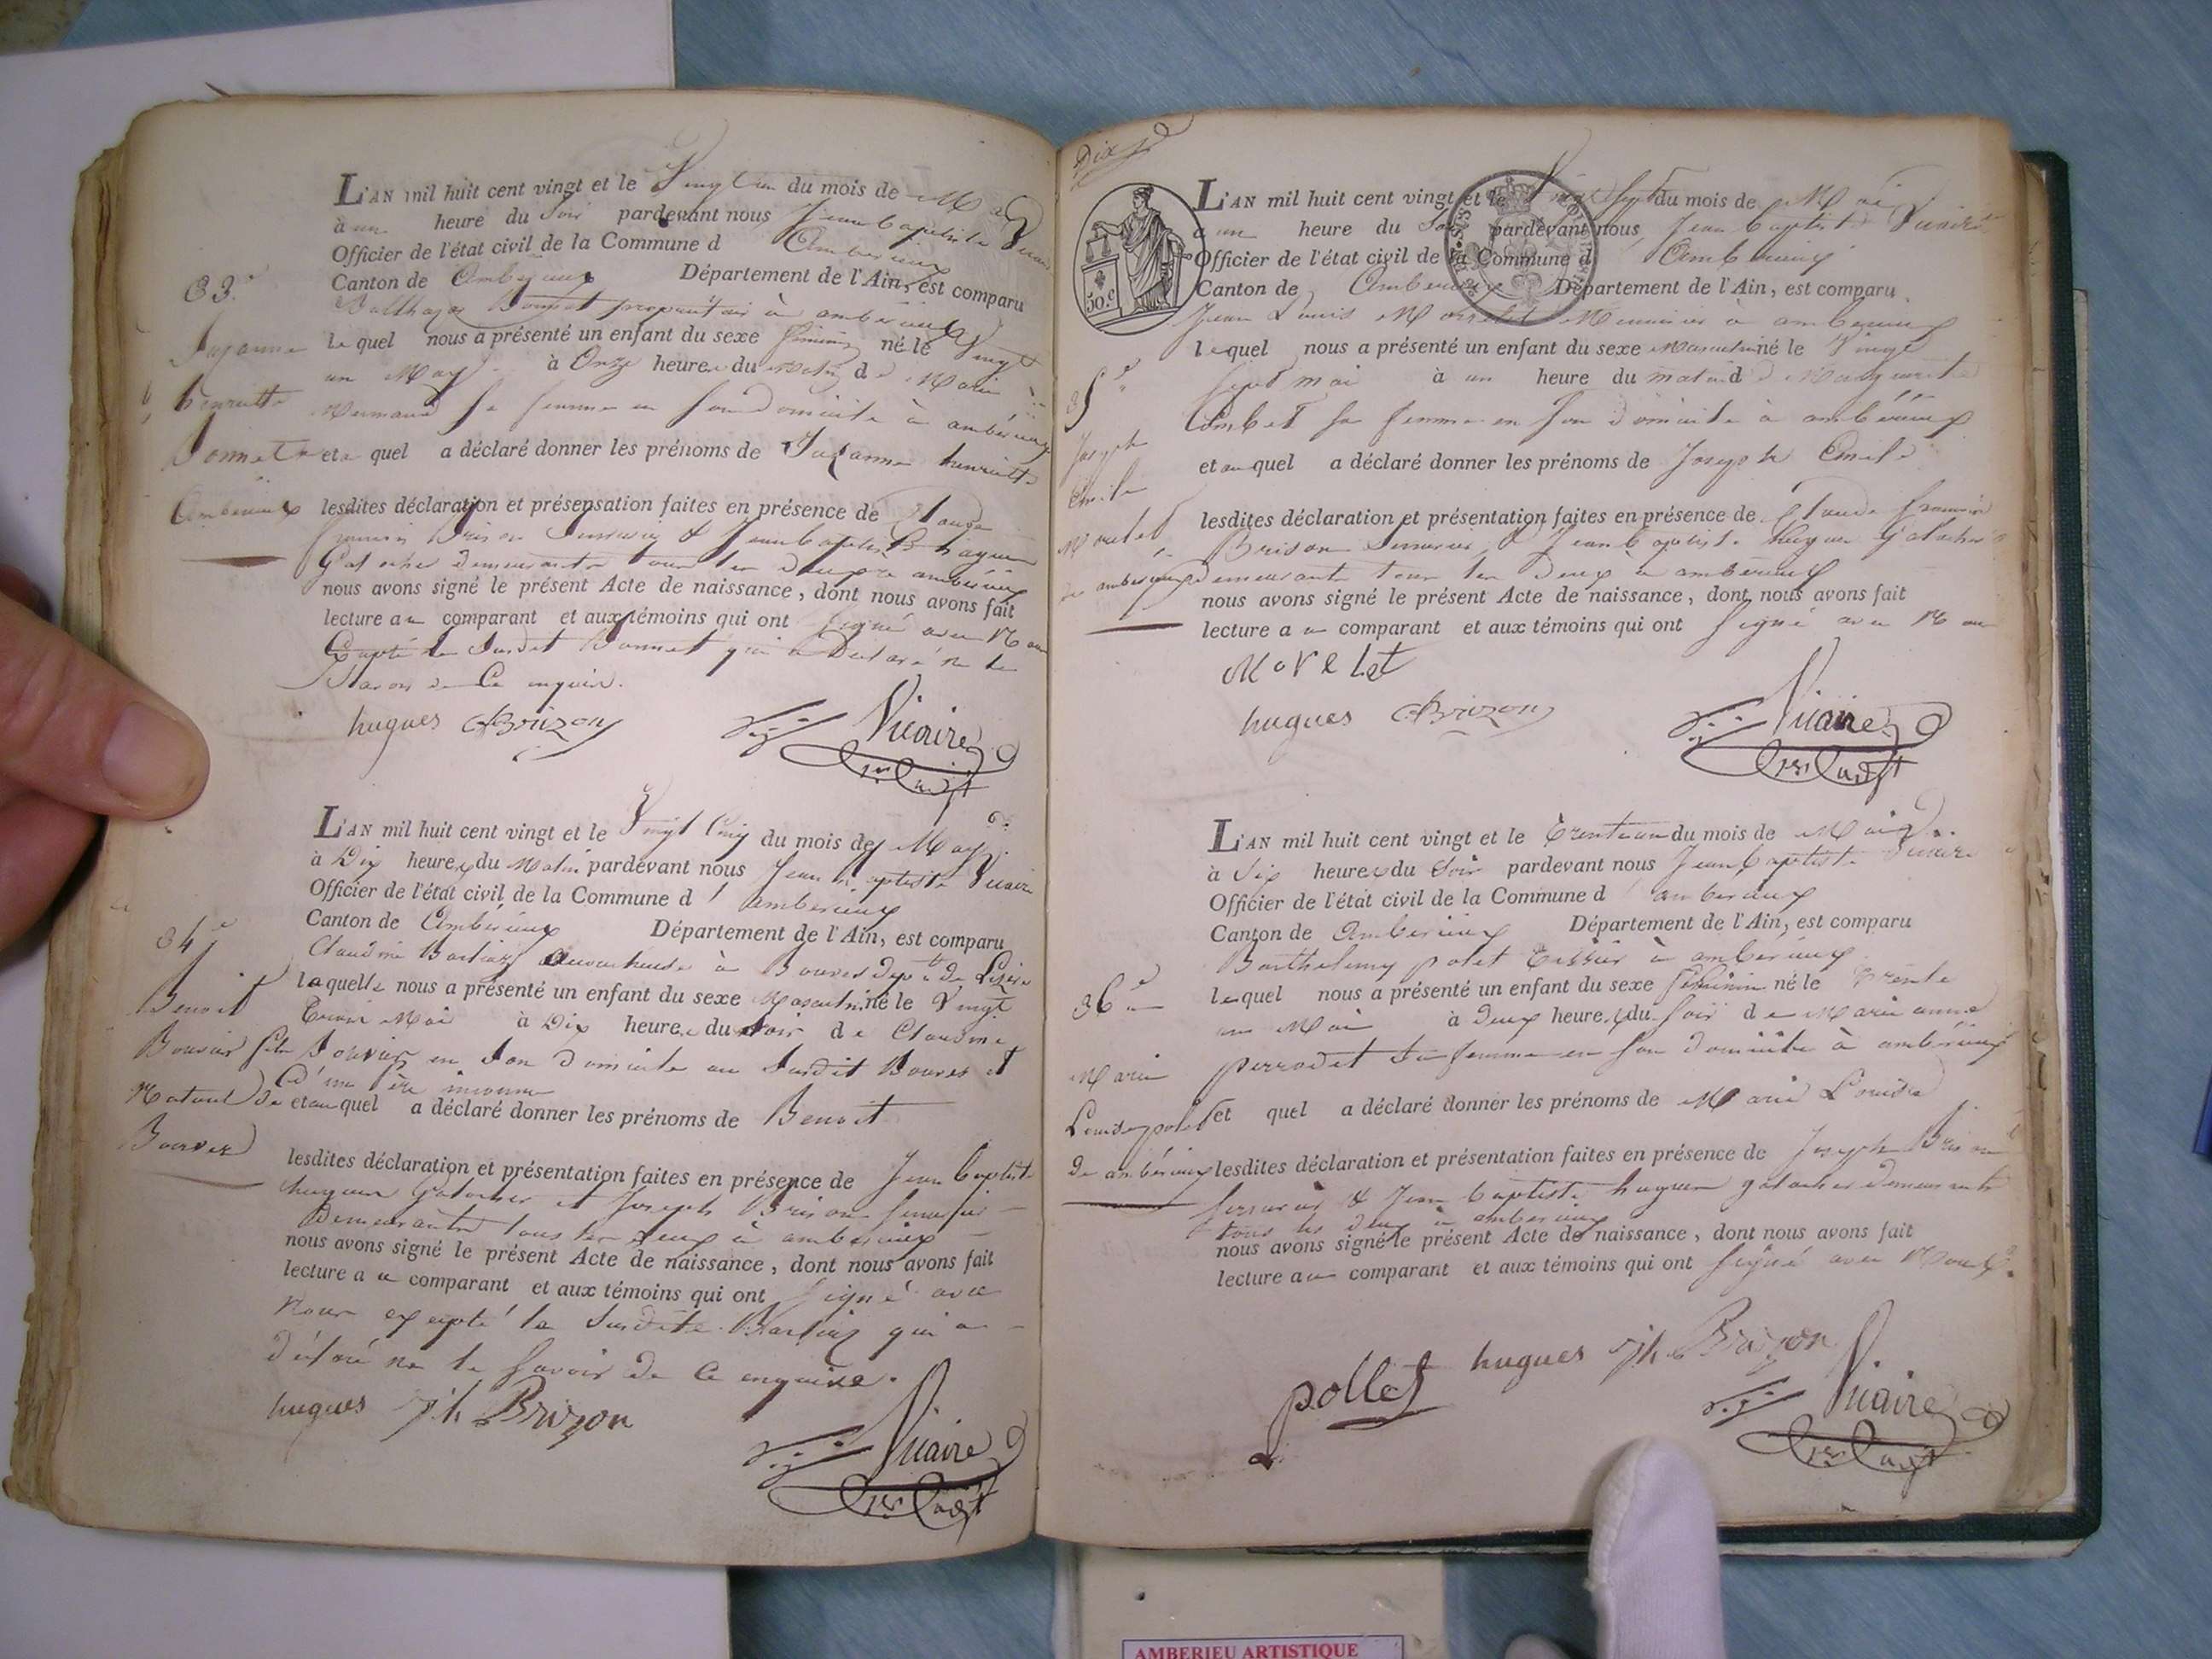 L'AN mil huit cent vingt et le Vingt un du mois de Mai
à un heure du Soir pardevant nous Jean baptiste Vicaire
Officier de l'état civil de la Commune d Amberieux
Canton de Amberieux Département de l'Ain, est comparu
33.e
Balthazar Bonnet proprietaire à amberieux
Suzanne
lequel nous a présenté un enfant du sexe feminin né le Vingt
un May à Onze heure du Matin de Marie
henriette
sa femme en son domicile à amberieux
Bonnet
et a quel a déclaré donner les prénoms de Suzanne henriette
Amberieux
lesdites déclaration et présensation faites en présence de Claude
francois Brison Serrurier & Jean baptiste hugues
Galocher demeurants tous les deux a amberieux
nous avons signé le présent Acte de naissance, dont nous avons fait
lecture au comparant et aux témoins qui ont signé avec Nous
Excepté le Susdit Bonnet qui a Declaré ne le
Savoir de Ce enquis.
hugues CBrizon Vicaire
L'AN mil huit cent vingt et le Vingt Cinq du mois de May
à Dix heure du Matin pardevant nous Jean baptiste Vicaire
Officier de l'état civil de la Commune d'amberieux
Canton de Amberieux Département de l'Ain, est comparu
34.e
Claudine accoucheuse à
Benoit
laquelle nous a présenté un enfant du sexe Masculin né le Vingt
Trois Mai à Dix heure du soir de Claudine
Bouvier fils
Bouvier en Son Domicile au Susdit et
d'un père inconnu
Naturel de
et au quel a déclaré donner les prénoms de Benoit
lesdites déclaration et présentation faites en présence de Jean baptiste
hugues Galocher et Joseph Brison Serrurier
Demeurants tous les deux à amberieux
nous avons signé le présent Acte de naissance, dont nous avons fait
lecture a u comparant et aux témoins qui ont signé avec
Nous excepté la Susdite qui a
déclaré ne le Savoir de Ce enquise.
hugues Jh Brizon Vicaire
Dix
50.c
L'AN mil huit cent vingt et le Vingt Sept du mois de Mai
à un heure du Soir pardevant nous Jean baptiste Vicaire
Officier de l'état civil de la Commune d Amberieux
Canton de Amberieux Département de l'Ain, est comparu
Jean Louis Morelet Meunier à amberieux
lequel nous a présenté un enfant du sexe Masculin né le Vingt
35.e
Sept mai à un heure du matin de Marguerite
Combet sa femme en son domicile à amberieux
Joseph
et au quel a déclaré donner les prénoms de Joseph Emile
Emile
lesdites déclaration et présentation faites en présence de Claude francois
Morelet
Brison Serrurier & Jean baptiste hugues Galocher
de amberieux
demeurants tous les deux à amberieux
nous avons signé le présent Acte de naissance, dont nous avons fait
lecture a u comparant et aux témoins qui ont signé avec Nous
Morelet
hugues CBrizon Vicaire
L'AN mil huit cent vingt et le Trente un du mois de Mai
à Six heure du Soir pardevant nous Jean baptiste Vicaire
Officier de l'état civil de la Commune d'amberieux
Canton de Amberieux Département de l'Ain, est comparu
Barthelemy polet Tissier à amberieux
36.e
lequel nous a présenté un enfant du sexe feminin né le Trente
un Mai à deux heure du Soir de Marie anne
Marie
perrodet sa femme en son domicile à amberieux
Louise polet
et quel a déclaré donner les prénoms de Marie Louise
de amberieux
lesdites déclaration et présentation faites en présence de Joseph Brison
serrurier & Jean baptiste hugues galocher demeurants
tous les deux à amberieux
nous avons signé le présent Acte de naissance, dont nous avons fait
lecture au comparant et aux témoins qui ont signé avec Nous
pollet hugues Jh Brizon Vicaire
AMBERIEU ARTISTIQUE